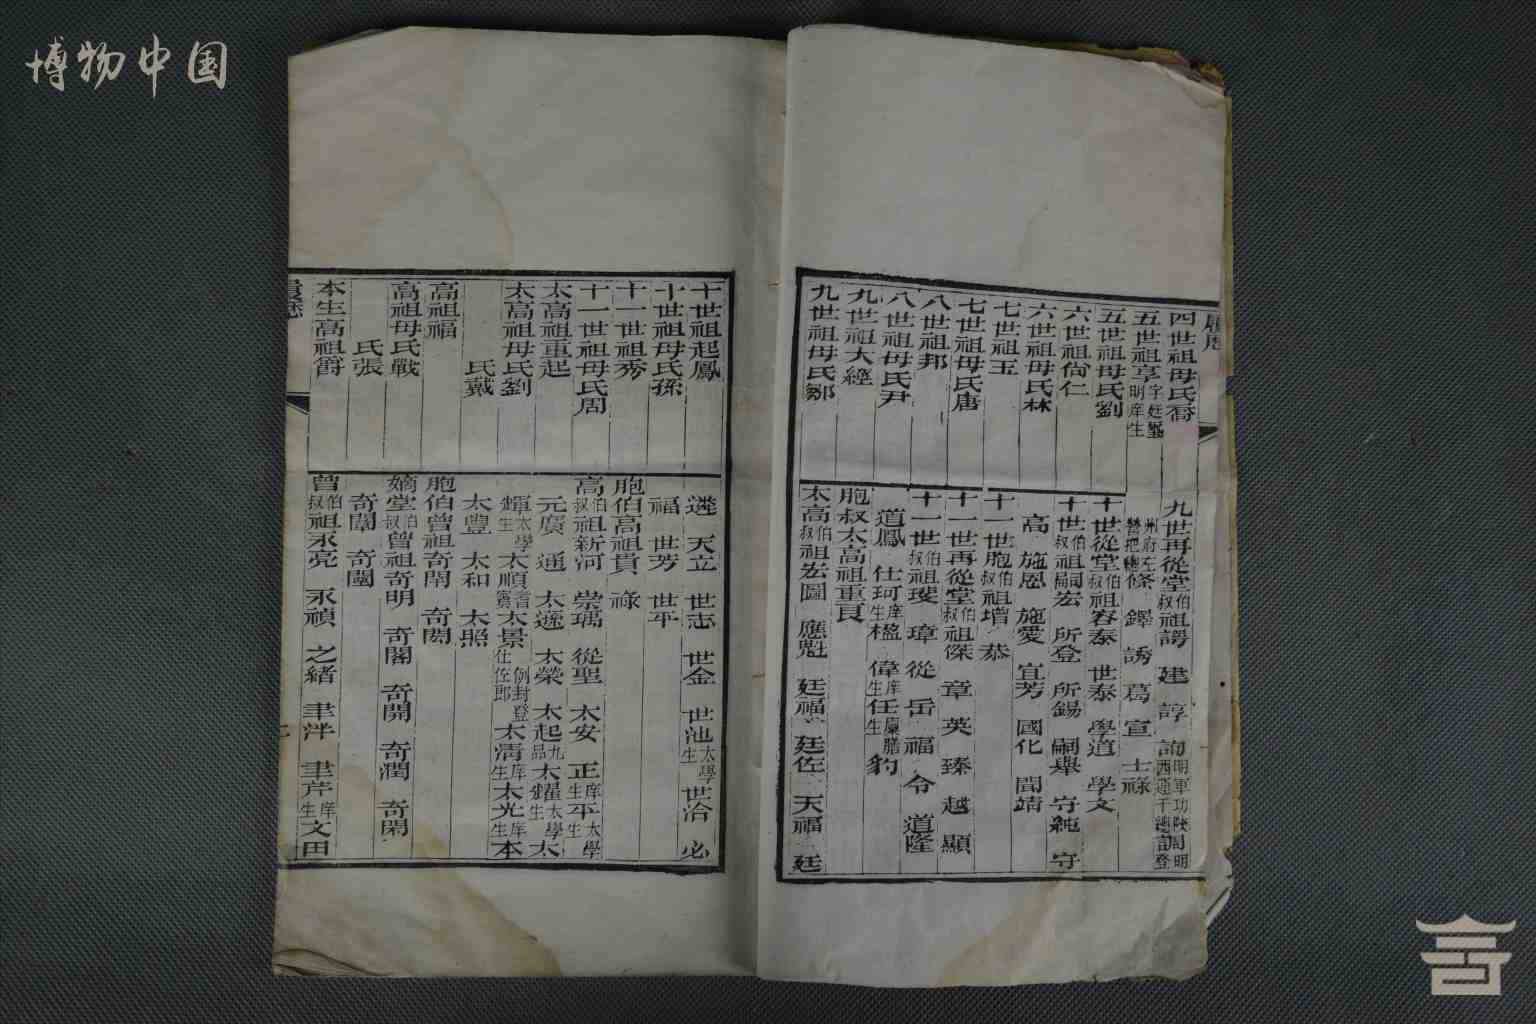 博物中国
履歷
四世祖母氏喬
五世祖享 字廷 明庠生
五世祖母氏劉
六世祖尙仁
六世祖母氏林
七世祖玉
七世祖母氏唐
八世祖邦
八世祖母氏尹
九世祖大經
九世祖母氏鄒
九世再從堂伯叔祖謗 建 諄 詢
鐸 誘 葛 宣 士祿
十世從堂伯叔祖容泰 世泰 學道 學文
十世伯叔祖嗣宏 所登 所錫 嗣舉 守純 守
高 施恩 施愛 宜芳 國化 聞靖
十一世胞伯叔祖增 恭
十一世再從堂伯叔祖傑 章 英 臻 越 顯
十一世伯叔祖 璋 從 岳 福 令 道隆
道鳳 仕珂庠生 楹 偉庠生 任廩膳生 豹
胞叔太高祖重貢
太高伯叔祖宏圖 應魁 廷福 廷佐 天福 廷
十世祖起鳳
十世祖母氏孫
十一世祖秀
十一世祖母氏周
太高祖重起
太高祖母氏劉
氏戴
高祖福
高祖母氏戰
氏張
本生高祖爵
遴 天立 世志 世金 世池太學生 世洽 必
福 世芳 世平
胞伯高祖貫 祿
高伯叔祖新河 崇瑀 從聖 太安 正庠生 平太學生
元廣 通 太遜 太榮 太起九品 太耀太學生 太
輝太學生 太順耆賓 太景例封登仕佐郎 太清庠生 太光庠生 本
太豐 太和 太照
胞伯曾祖奇閈 奇閎
嫡堂伯叔曾祖奇明 奇閣 奇開 奇潤 奇閑
奇閩 奇闥
曾伯叔祖永亮 永禎 之緒 聿泮 聿芹庠生 文田